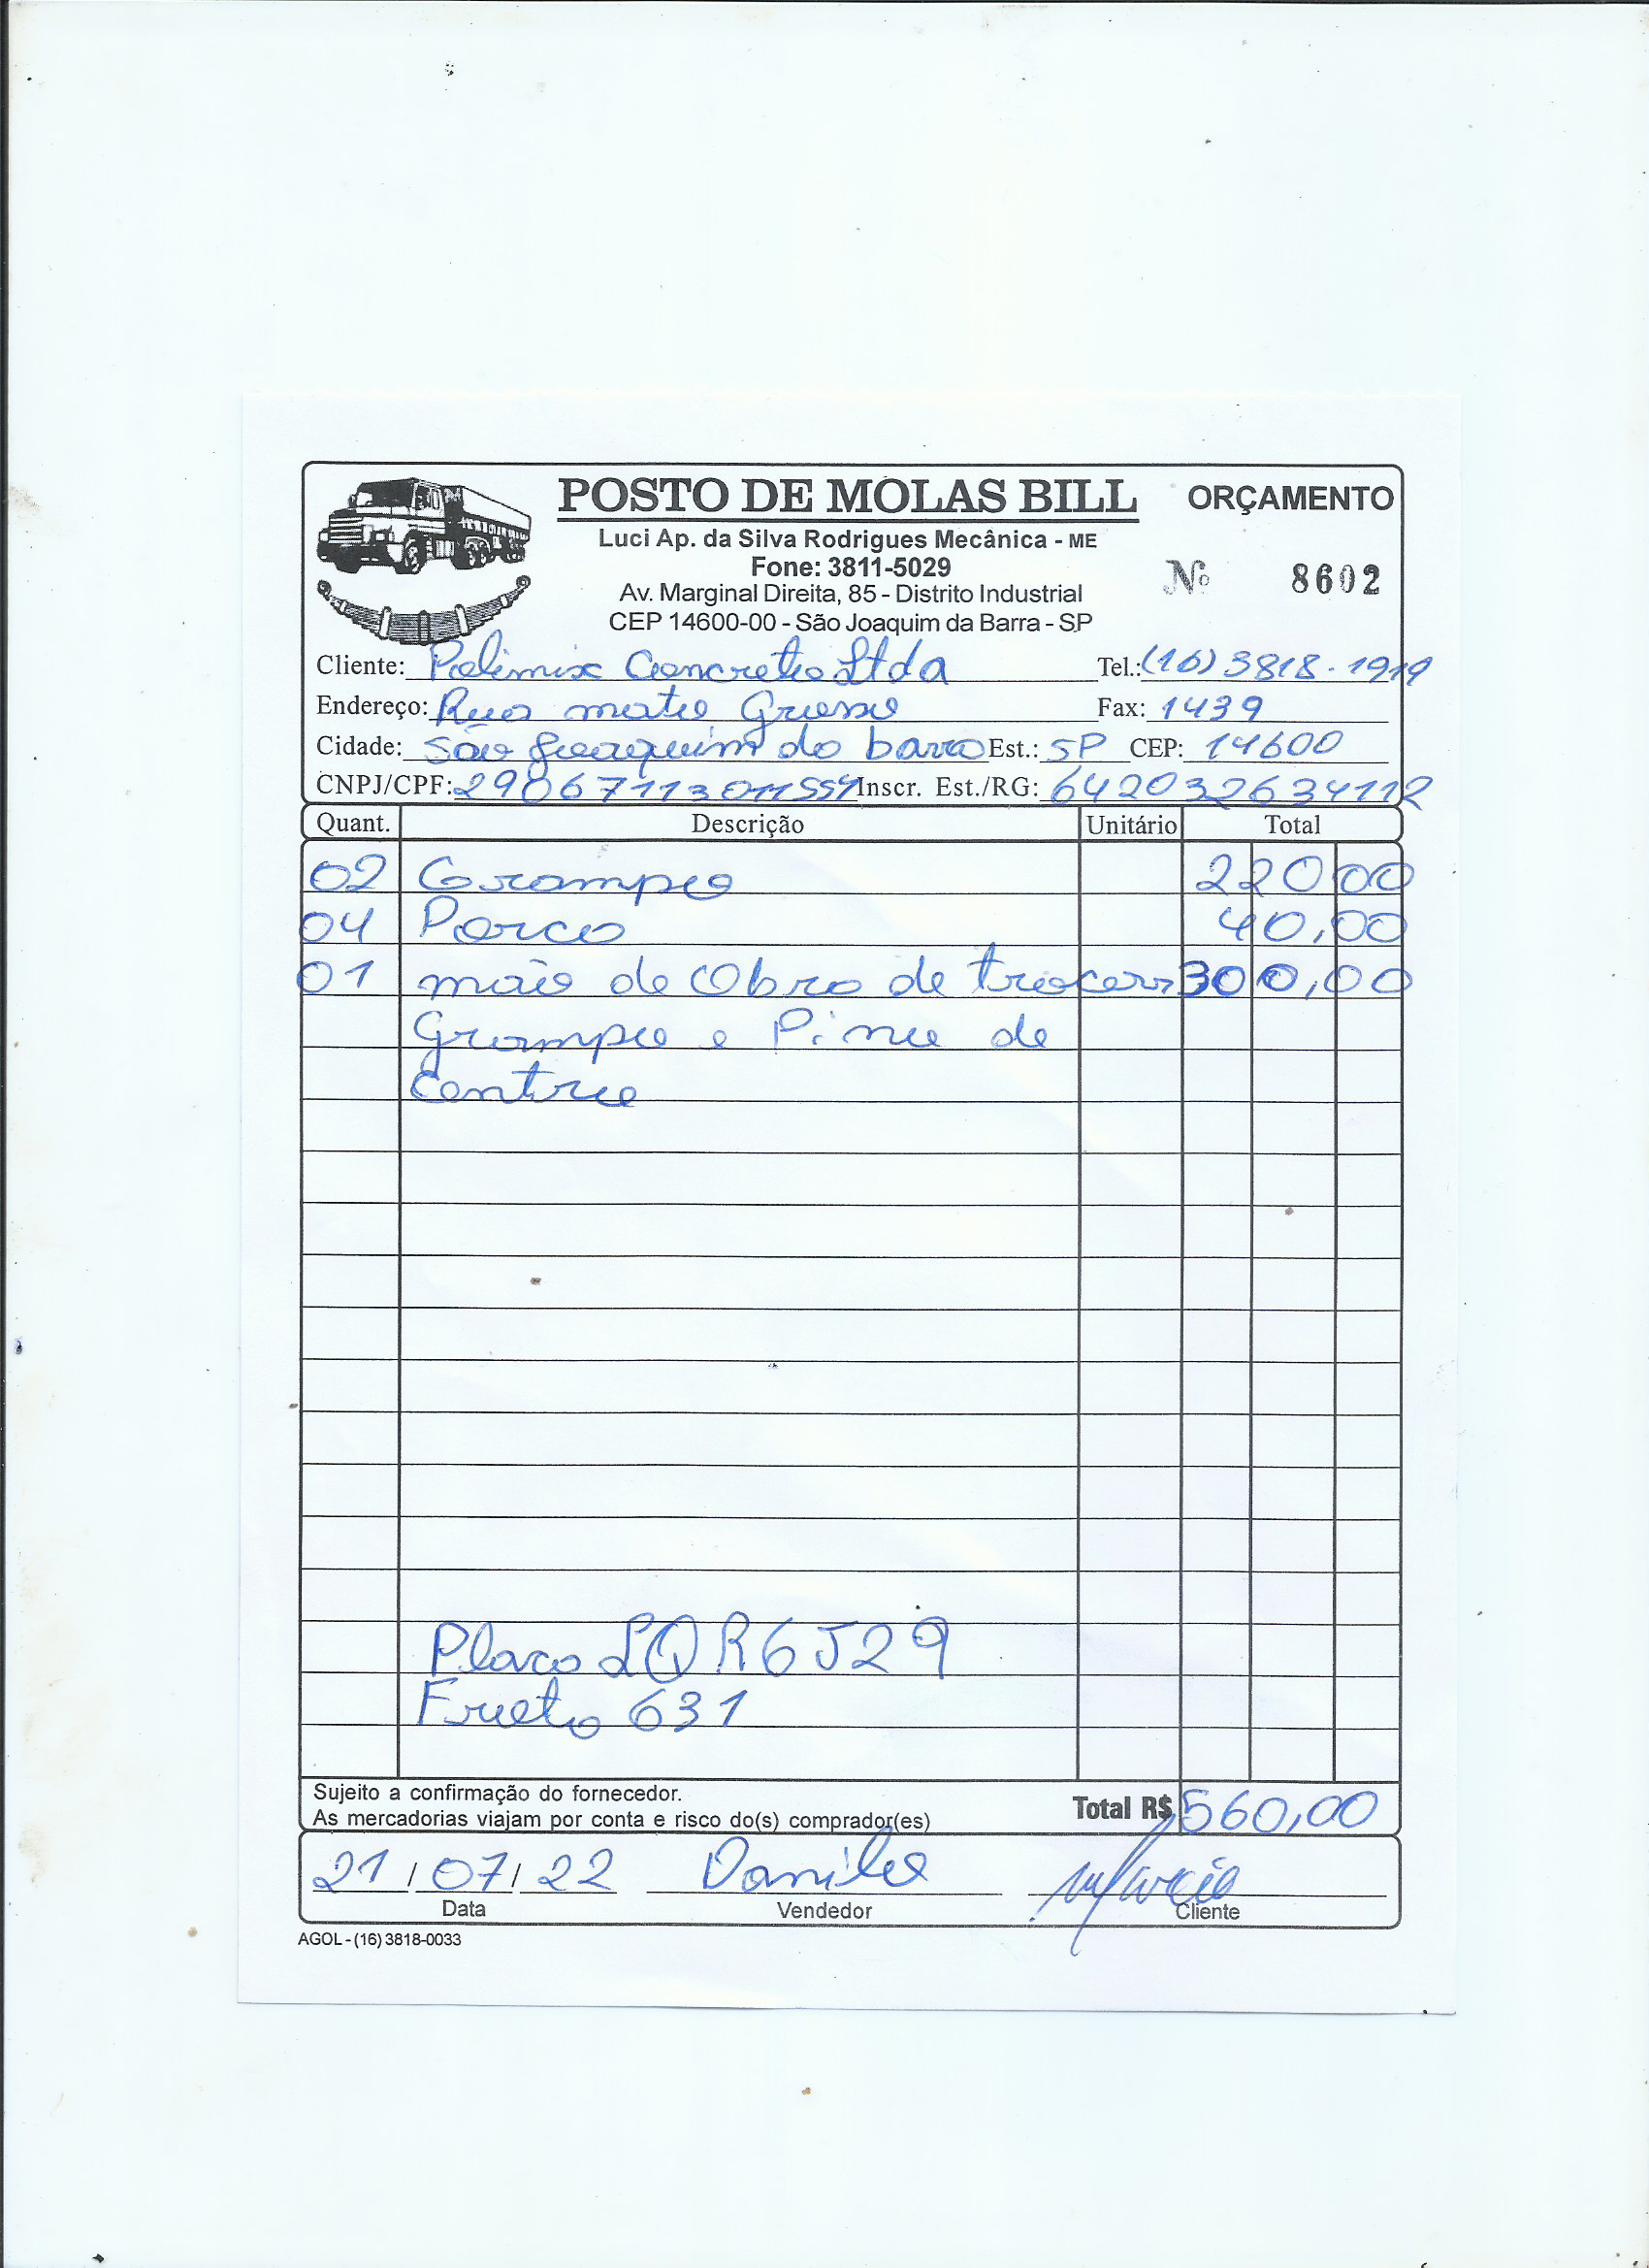 POSTO DE MOLAS BILL ORÇAMENTO
Luci Ap. da Silva Rodrigues Mecânica - ME
Fone: 3811-5029
Nº 8602
Av. Marginal Direita, 85 - Distrito Industrial
CEP 14600-00 - São Joaquim da Barra - SP
Cliente: Polimix Concreto Ltda Tel.: (16) 3818-1919
Endereço: Rua mato Grosso Fax: 1439
Cidade: São Joaquim da barra Est.: SP CEP: 14600
CNPJ/CPF: 29067113011554 Inscr. Est./RG: 642032634112
Quant. Descrição Unitário Total
02 Grampo 220,00
04 Porca 40,00
01 mão de Obra de trocar 300,00
Grampo e Pino de
Centro
Placa LQR6J29
Frota 631
Sujeito a confirmação do fornecedor.
As mercadorias viajam por conta e risco do(s) comprador(es) Total R$ 560,00
21/07/22 Danilo
Data Vendedor Cliente
AGOL - (16) 3818-0033